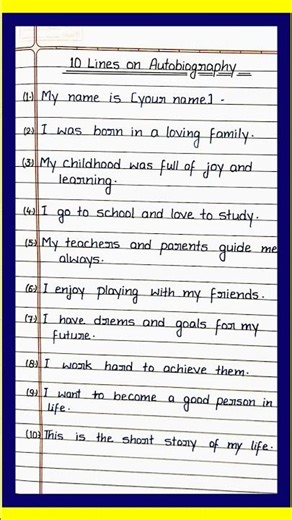 10 Lines on Autobiography
(1) My name is [your name] -
(2) I was born in a loving family.
(3) My childhood was full of joy and
learning.
(4) I go to school and love to study.
(5) My teachers and parents guide me
always.
(6) I enjoy playing with my friends.
(7) I have driems and goals for my
future.
(8) I work hard to achieve them.
(9) I want to become a good person in
life.
(10) This is the short story of my life.